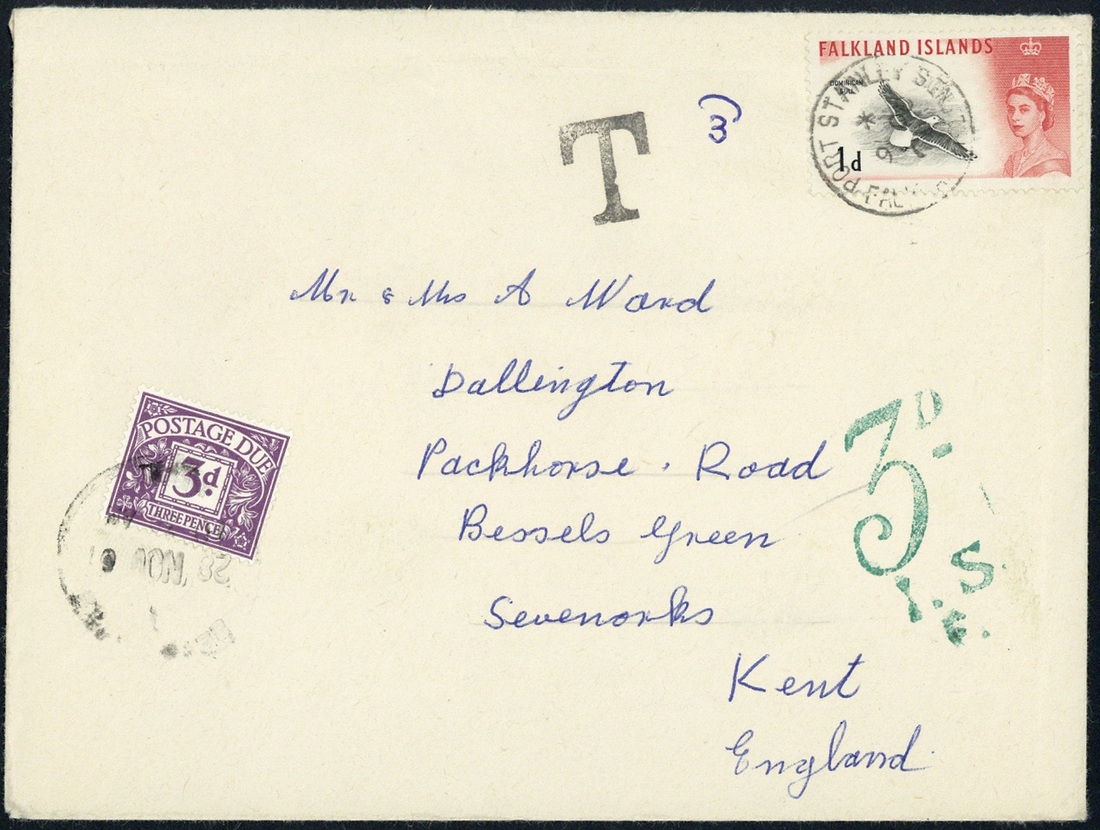 FALKLAND ISLANDS
DOMINICAN GULL
1d
PORT STANLEY
T
3
Mr & Mrs A Ward
Dallington
Packhorse. Road
Bessels Green
Sevenorks
Kent
England
POSTAGE DUE
3d.
THREE PENCE
28 NOV
3D.
I.S.